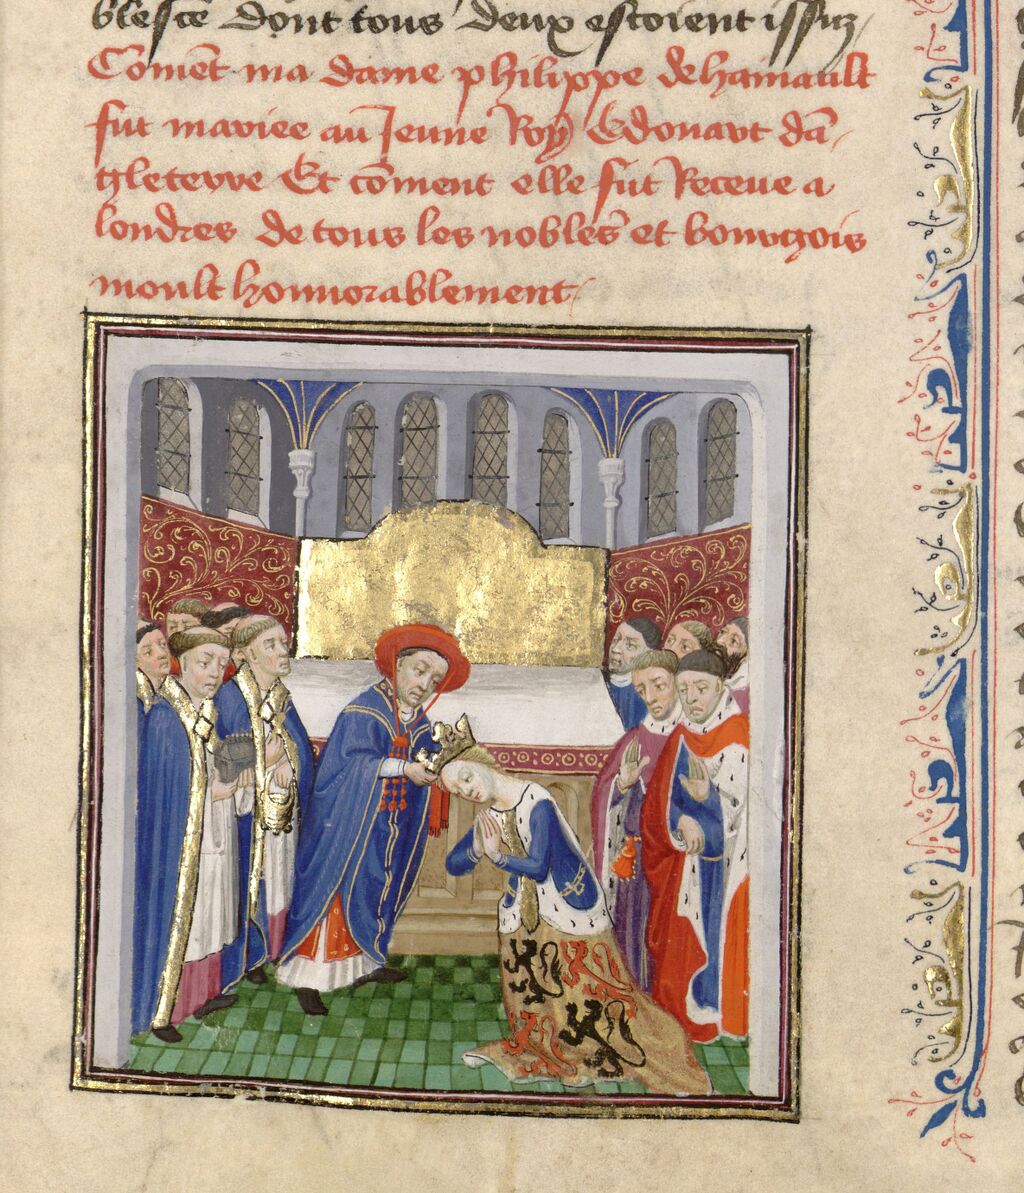 blesce dont tous deux estoient issuz
Coment ma dame philippe de hainault
fut mariee au Jeune Roy Edouart dā
gleterre Et cōment elle fut Receue a
londres de tous les nobles et bourgois
moult honnorablement